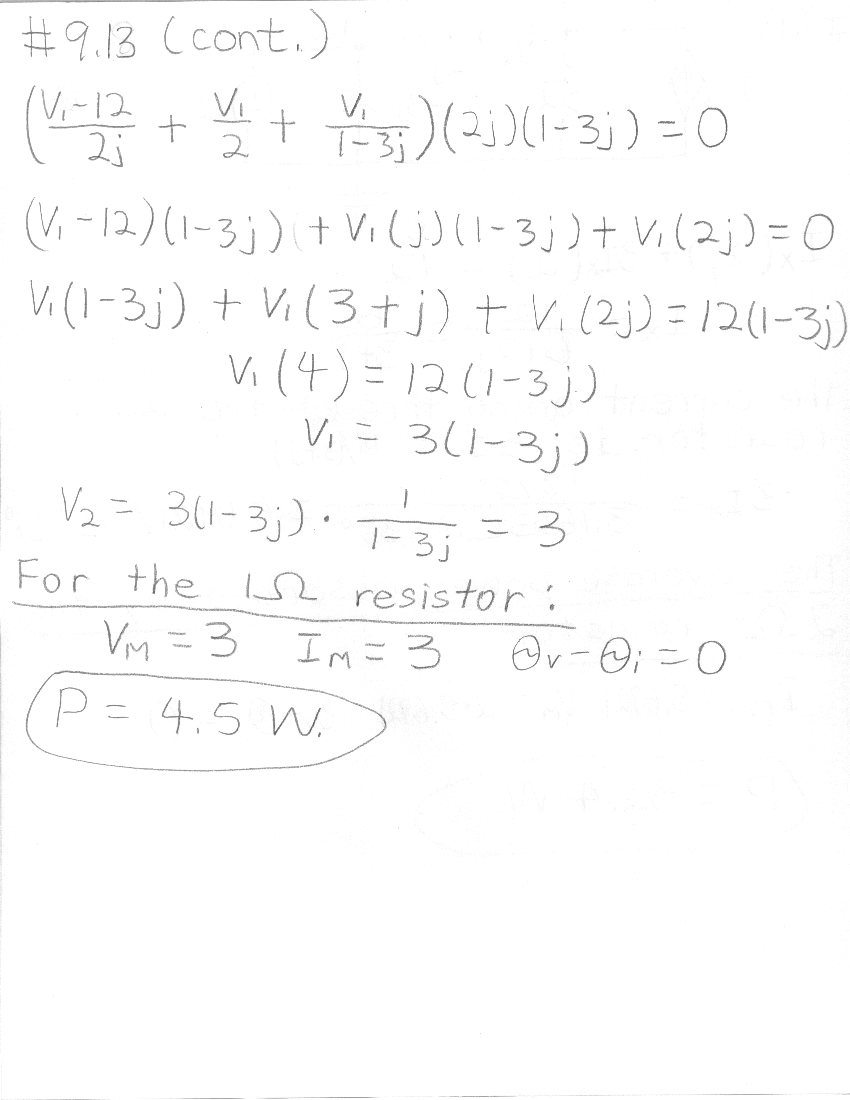 #9.13 (cont.)
(V₁-12/2j + V₁/2 + V₁/1-3j)(2j)(1-3j) = 0
(V₁-12)(1-3j) + V₁(j)(1-3j) + V₁(2j) = 0
V₁(1-3j) + V₁(3+j) + V₁(2j) = 12(1-3j)
V₁(4) = 12(1-3j)
V₁ = 3(1-3j)
V₂ = 3(1-3j) · 1/1-3j = 3
For the 1Ω resistor:
V_M = 3 I_M = 3 Θᵥ-Θᵢ = 0
P = 4.5 W.